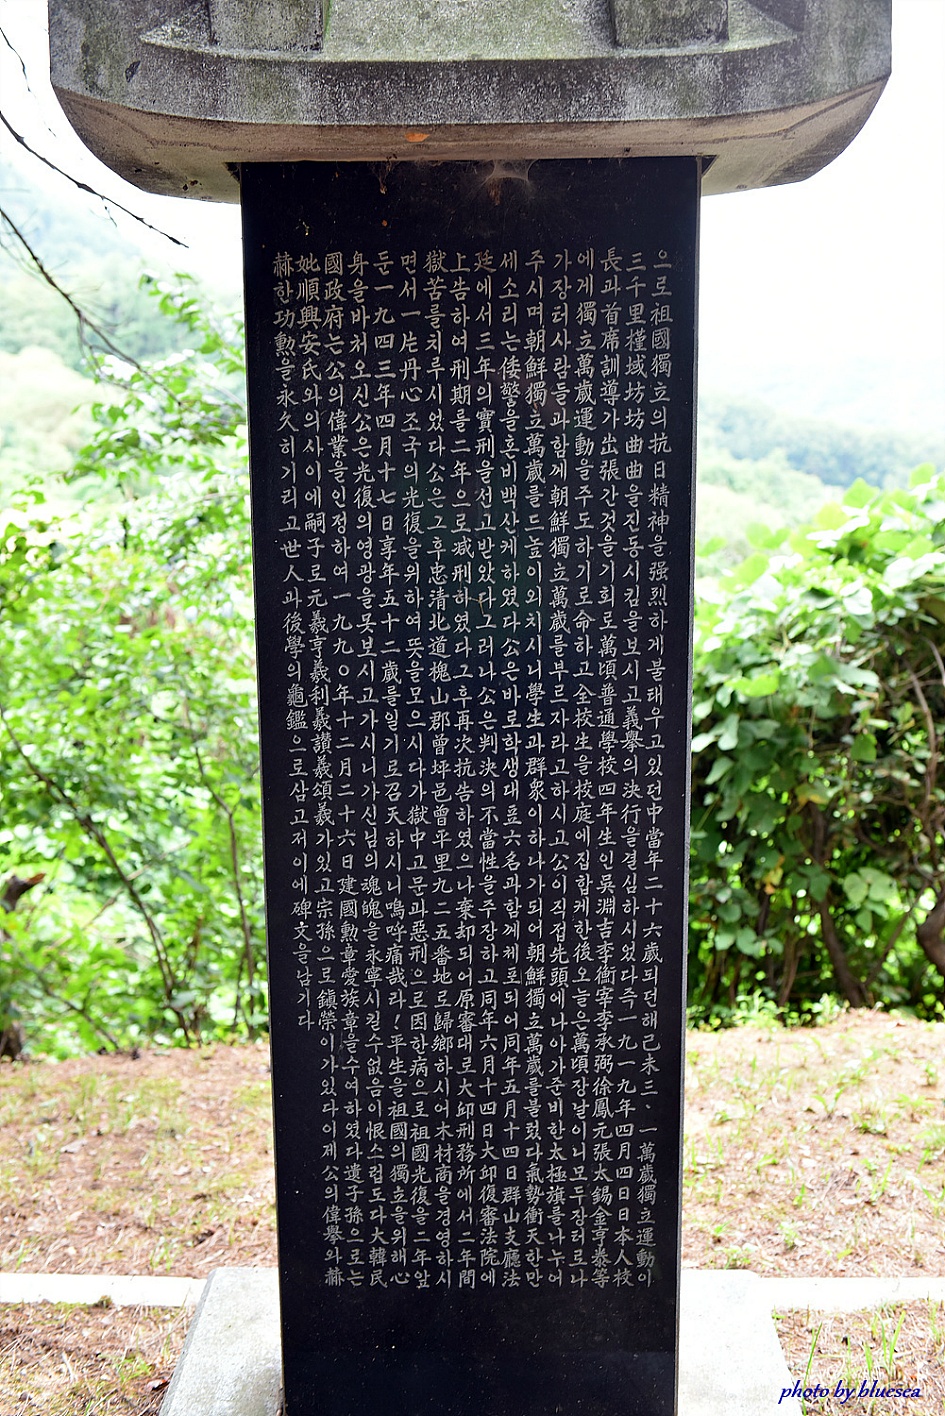 으로祖國獨立의抗日精神을强烈하게불태우고있던中當年二十六歲되던해己未三、一萬歲獨立運動이
三千里槿域坊坊曲曲을진동시킴을보시고義擧의決行을결심하시었다즉一九一九年四月四日日本人校
長과首席訓導가出張간것을기회로萬頃普通學校四年生인吳淵吉李衡宰李承弼徐鳳元張太錫金亨泰等
에게獨立萬歲運動을주도하기로命하고全校生을校庭에집합케한後오늘은萬頃장날이니모두장터로나
가장터사람들과함께朝鮮獨立萬歲를부르자라고하시고公이직접先頭에나아가준비한太極旗를나누어
주시며朝鮮獨立萬歲를드높이외치시니學生과群衆이하나가되어朝鮮獨立萬歲를불렀다氣勢衝天한만
세소리는倭警을혼비백산케하였다公은바로학생대표六名과함께체포되어同年五月十四日群山支廳法
廷에서三年의實刑을선고받았다그러나公은判決의不當性을주장하고同年六月十四日大邱復審法院에
上告하여刑期를二年으로減刑하였다그후再次抗告하였으나棄却되어原審대로大邱刑務所에서二年間
獄苦를치루시었다公은그후忠清北道槐山郡曾坪邑曾平里九二五番地로歸鄕하시어木材商을경영하시
면서一片丹心조국의光復을위하여뜻을모으시다가獄中고문과惡刑으로因한病으로祖國光復을二年앞
둔一九四三年四月十七日享年五十二歲를일기로召天하시니嗚呼痛哉라!平生을祖國의獨立을위해心
身을바처오신公은光復의영광을못보시고가시니가신님의魂魄을永寧시킬수없음이恨스럽도다大韓民
國政府는公의偉業을인정하여一九九○年十二月二十六日建國勲章愛族章을수여하였다遺子孫으로는
妣順興安氏와의사이에嗣子로元羲亨羲利羲讚羲頌羲가있고宗孫으로鎭榮이가있다이제公의偉擧와赫
赫한功勲을永久히기리고世人과後學의龜鑑으로삼고저이에碑文을남기다
photo by bluesea